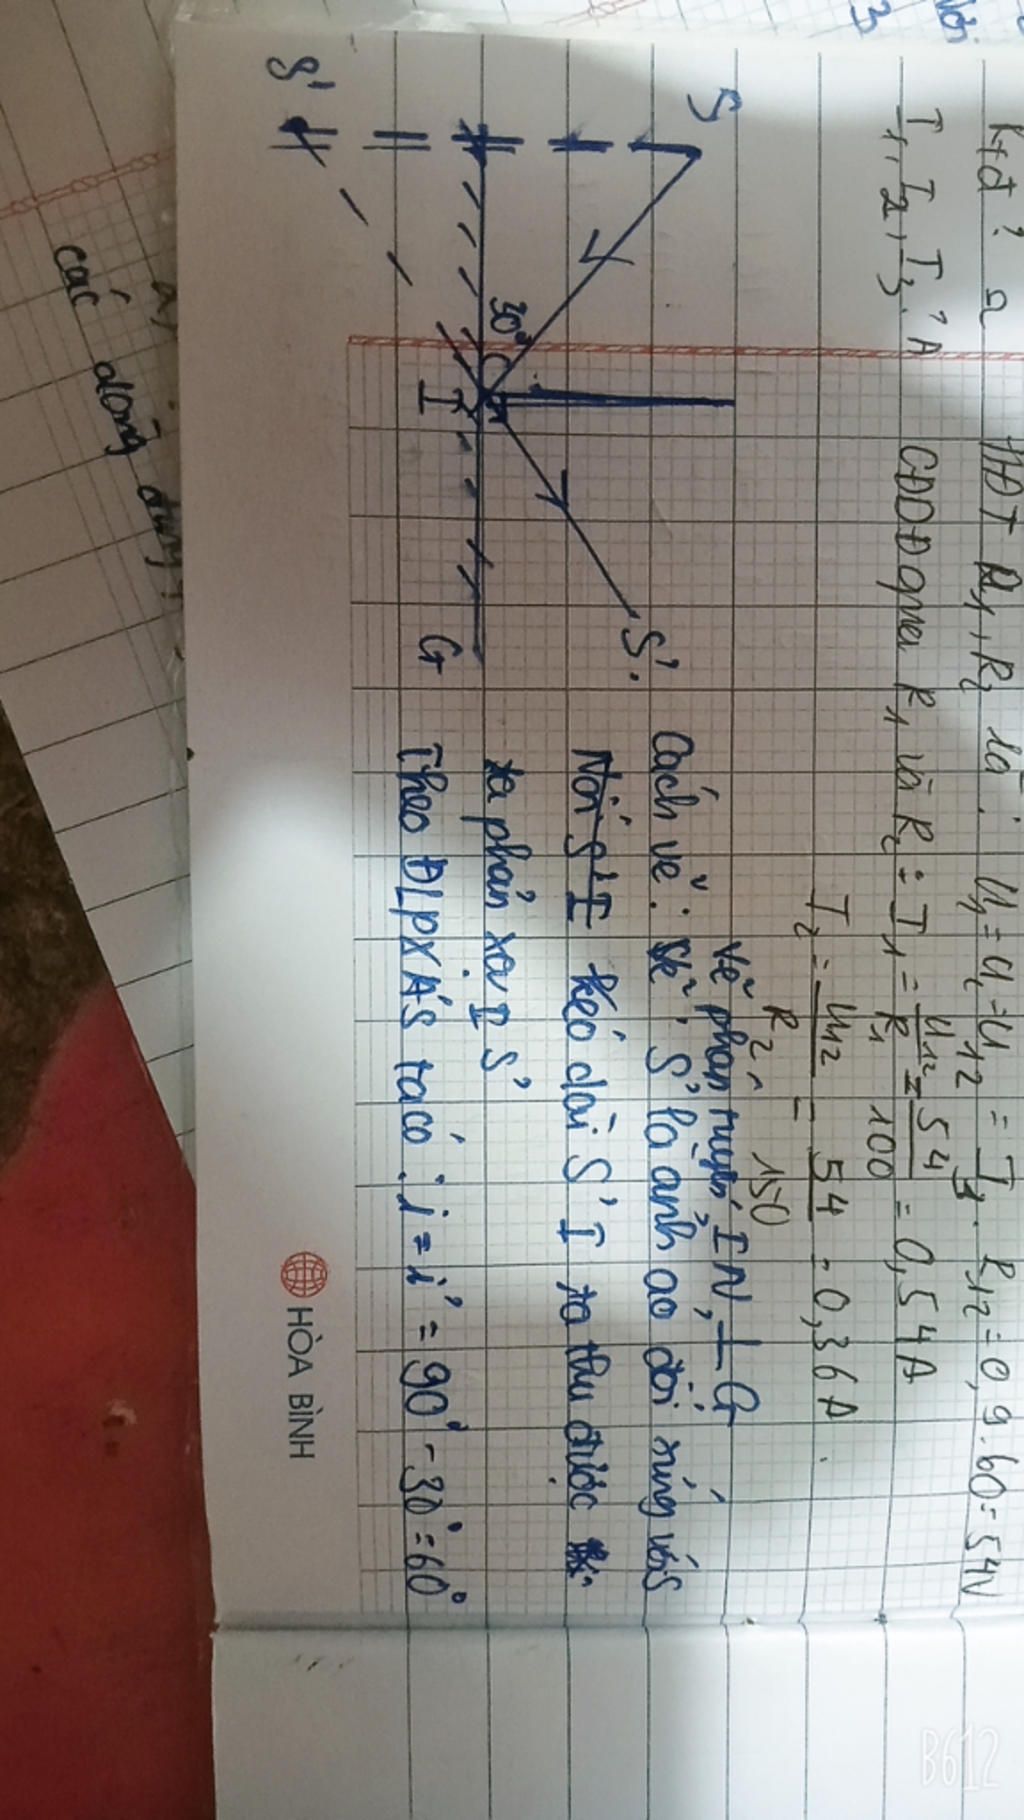 Rtđ ? Ω
HĐT R1, R2 là : U1 = U2 = U12 = I3 . R12 = 0,9 . 60 = 54V
I1, I2, I3 ? A
CĐDĐ qua R1 và R2 : I1 = U12/R1 = 54/100 = 0,54A
I2 = U12/R2 = 54/150 = 0,36A.
S
30°
I
S'.
G
S'
Vẽ pháp tuyến IN, ⊥ G
Cách vẽ : S' là ảnh ảo đối xứng với S
Nối S'I kéo dài S'I ta thu được
tia phản xạ I S'
Theo ĐLPXAS ta có : i = i' = 90° - 30° = 60°
HÒA BÌNH
các dòng
B612